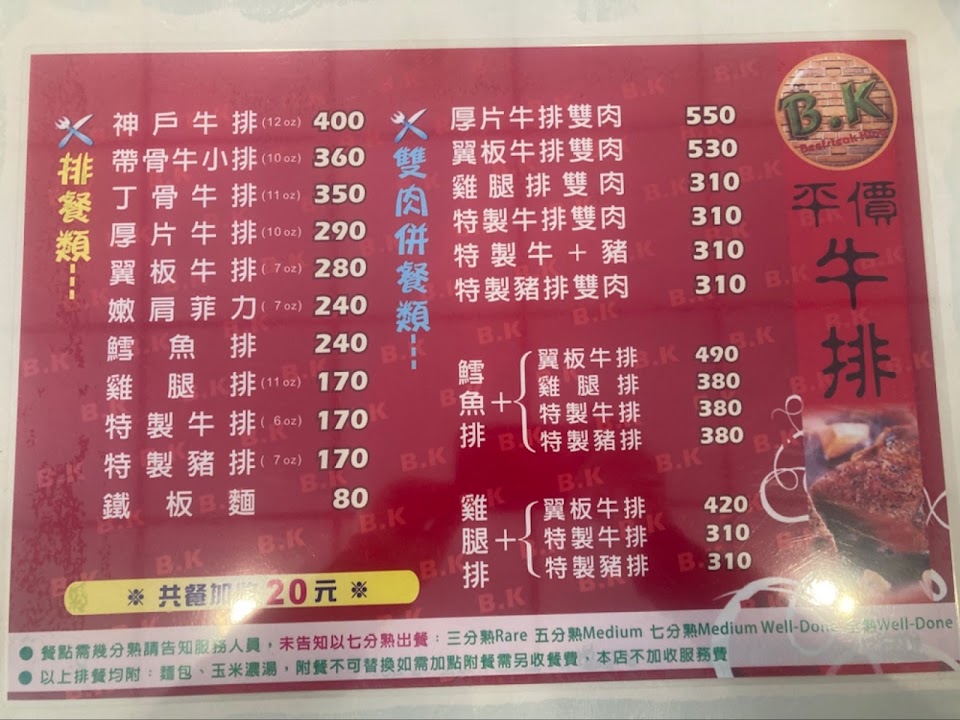 排餐類
神戶牛排(12 oz) 400
帶骨牛小排(10 oz) 360
丁骨牛排(11 oz) 350
厚片牛排(10 oz) 290
翼板牛排( 7 oz) 280
嫩肩菲力( 7 oz) 240
鱈魚排 240
雞腿排(11 oz) 170
特製牛排( 6 oz) 170
特製豬排( 7 oz) 170
鐵板麵 80
雙肉併餐類
厚片牛排雙肉 550
翼板牛排雙肉 530
雞腿排雙肉 310
特製牛排雙肉 310
特製牛＋豬 310
特製豬排雙肉 310
鱈魚排＋
翼板牛排 490
雞腿排 380
特製牛排 380
特製豬排 380
雞腿排＋
翼板牛排 420
特製牛排 310
特製豬排 310
B.K
平價牛排
※ 共餐加 20元 ※
● 餐點需幾分熟請告知服務人員，未告知以七分熟出餐：三分熟Rare 五分熟Medium 七分熟Medium Well-Done 熟Well-Done
● 以上排餐均附：麵包、玉米濃湯，附餐不可替換如需加點附餐需另收餐費，本店不加收服務費